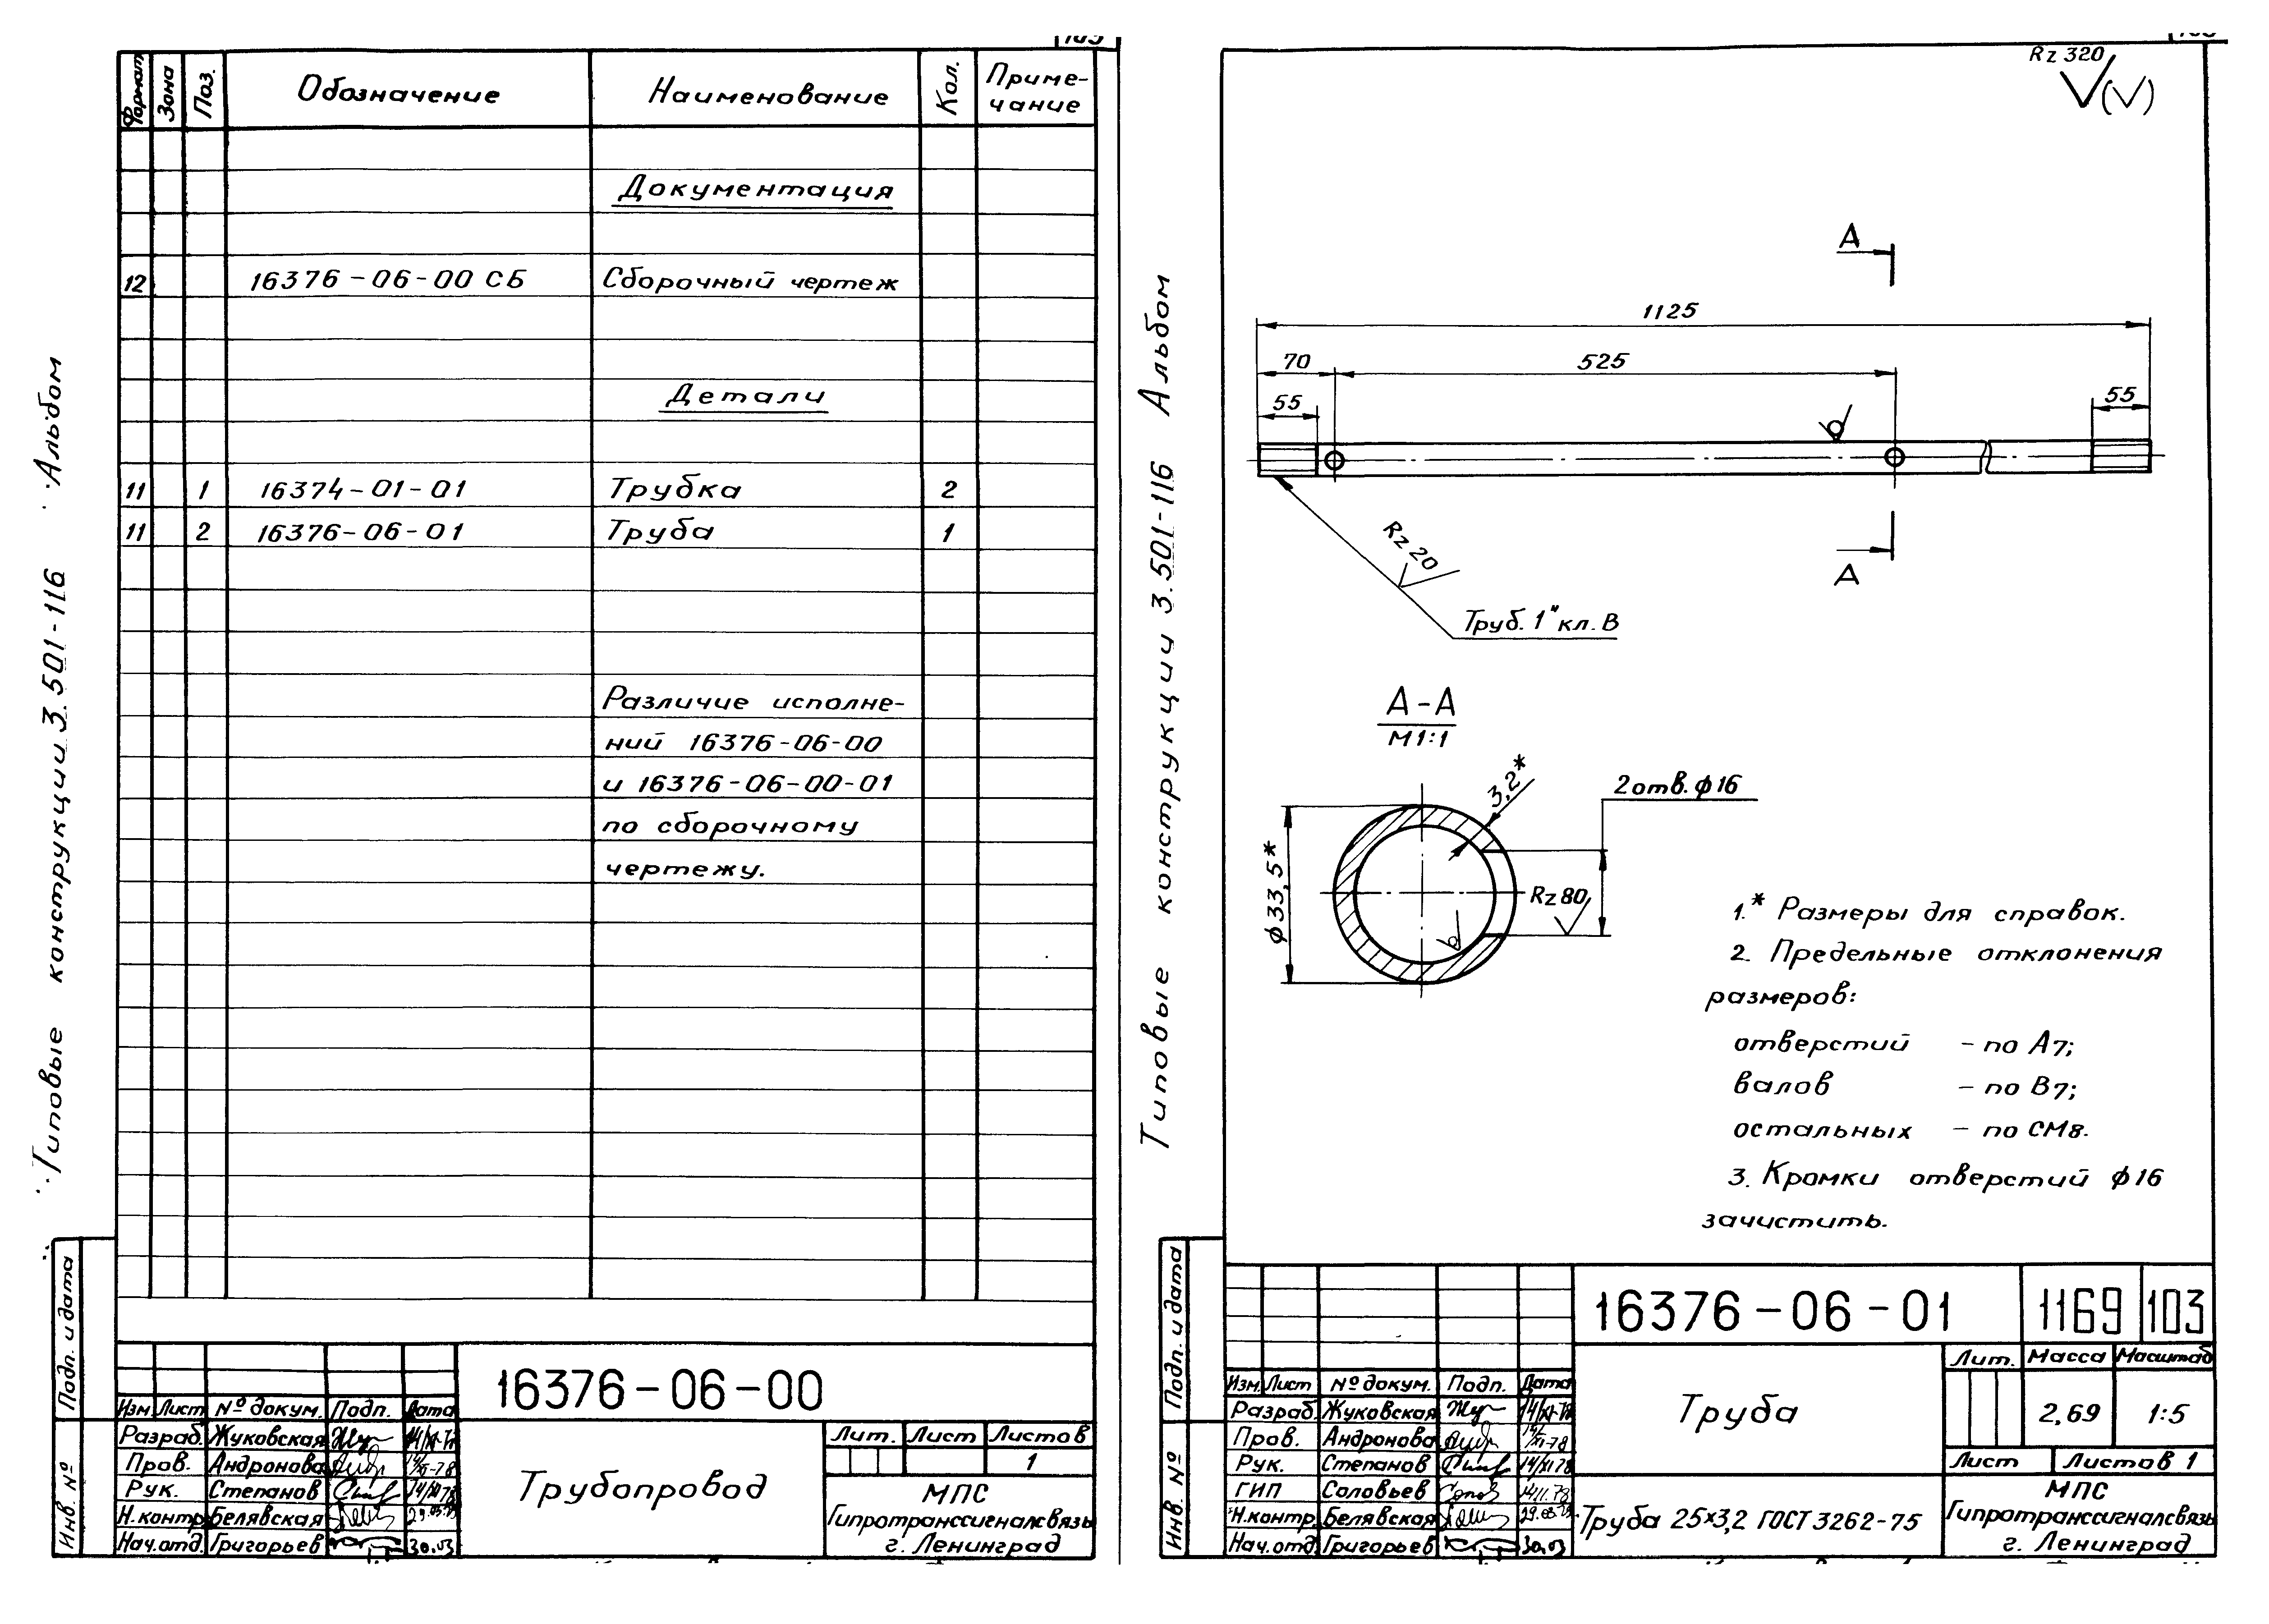 Формат Зона Поз. Обозначение Наименование Кол. Приме-
чание
Документация
12 16376-06-00 СБ Сборочный чертеж
Детали
11 1 16374-01-01 Трубка 2
11 2 16376-06-01 Труба 1
Различие исполне-
ний 16376-06-00
и 16376-06-00-01
по сборочному
чертежу.
Типовые конструкции 3.501-116 Альбом
Подп. и дата
Инв. №
16376-06-00
Изм. Лист № докум. Подп. Дата
Разраб. Жуковская
Пров. Андронова
Рук. Степанов
Н.контр. Белявская
Нач.отд. Григорьев 30.03
Трубопровод
Лит. Лист Листов
1
МПС
Гипротранссигналсвязь
г. Ленинград
Типовые конструкции 3.501-116 Альбом
Rz 320
А
1125
70 525
55 55
Rz 20
А
Труб. 1" кл. В
А-А
М1:1
3,2*
2 отв. ф16
ф33,5*
Rz 80
1.* Размеры для справок.
2. Предельные отклонения
размеров:
отверстий - по А7;
валов - по В7;
остальных - по СМ8.
3. Кромки отверстий ф16
зачистить.
Подп. и дата
Инв. №
16376-06-01 1169 103
Изм. Лист № докум. Подп. Дата
Разраб. Жуковская
Пров. Андронова
Рук. Степанов
ГИП Соловьев
Н.контр. Белявская
Нач.отд. Григорьев 30.03
Труба
Лит. Масса Масштаб
2,69 1:5
Лист Листов 1
Труба 25×3,2 ГОСТ 3262-75
МПС
Гипротранссигналсвязь
г. Ленинград